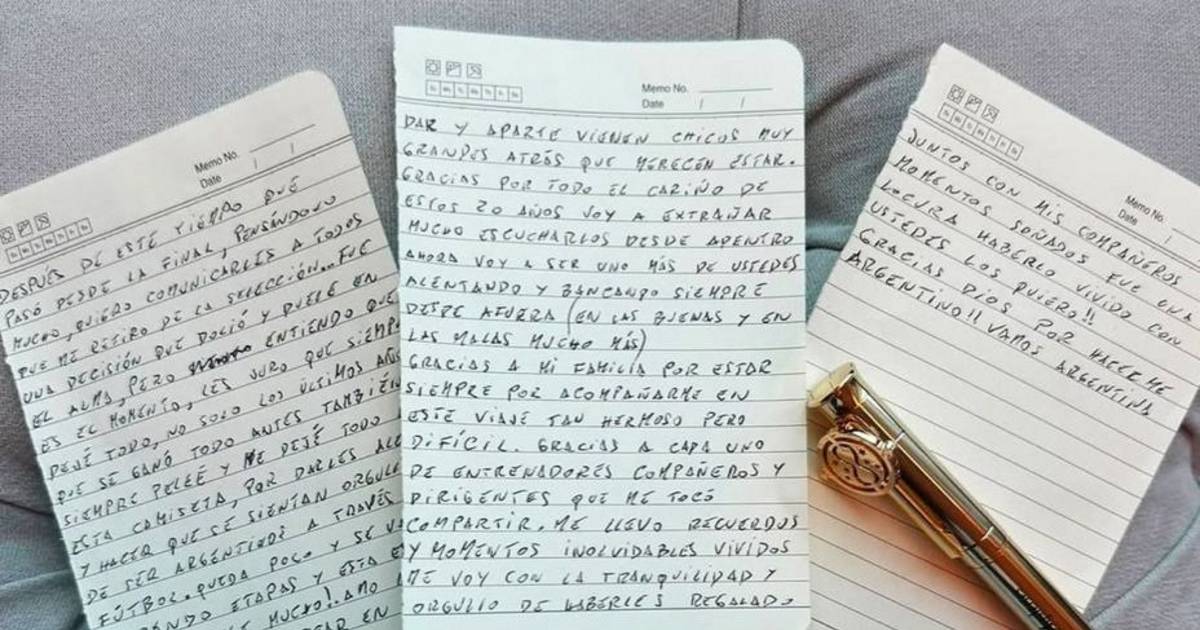 Memo No.
Date / /
DESPUÉS DE ESTE TIEMPO QUE
PASÓ DESDE LA FINAL, PENSÁNDOLO
MUCHO, QUIERO COMUNICARLES A TODOS
QUE ME RETIRO DE LA SELECCIÓN... FUE
UNA DECISIÓN QUE DOLIÓ Y DUELE EN
EL ALMA, PERO ENTIENDO QUE
ES EL MOMENTO, LES JURO QUE SIEMPRE
DEJÉ TODO, NO SOLO LOS ÚLTIMOS AÑOS
QUE SE GANÓ TODO ANTES TAMBIÉN
SIEMPRE PELEÉ Y ME DEJÉ TODO
ESTA CAMISETA, POR DARLES ALE
Y HACER QUE SE SIENTAN ORGULL
DE SER ARGENTINOS A TRAVÉS
FÚTBOL. QUEDA POCO Y SE V
ANDO ETAPAS Y ESTA
MUCHO! AMO
EN
Memo No.
Date / /
DAR Y APARTE VIENEN CHICOS MUY
GRANDES ATRÁS QUE MERECEN ESTAR.
GRACIAS POR TODO EL CARIÑO DE
ESTOS 20 AÑOS VOY A EXTRAÑAR
MUCHO ESCUCHARLOS DESDE ADENTRO
AHORA VOY A SER UNO MÁS DE USTEDES
ALENTANDO Y BANCANDO SIEMPRE
DESDE AFUERA (EN LAS BUENAS Y EN
LAS MALAS MUCHO MÁS)
GRACIAS A MI FAMILIA POR ESTAR
SIEMPRE POR ACOMPAÑARME EN
ESTE VIAJE TAN HERMOSO PERO
DIFÍCIL. GRACIAS A CADA UNO
DE ENTRENADORES COMPAÑEROS Y
DIRIGENTES QUE ME TOCÓ
COMPARTIR. ME LLEVO RECUERDOS
Y MOMENTOS INOLVIDABLES VIVIDOS
ME VOY CON LA TRANQUILIDAD Y
ORGULLO DE HABERLES REGALADO
Memo No.
Date /
JUNTOS CON MIS COMPAÑEROS
MOMENTOS SOÑADOS FUE UNA
LOCURA HABERLO VIVIDO CON
USTEDES LOS QUIERO!!
GRACIAS DIOS POR HACERME
ARGENTINO!! VAMOS ARGENTINA